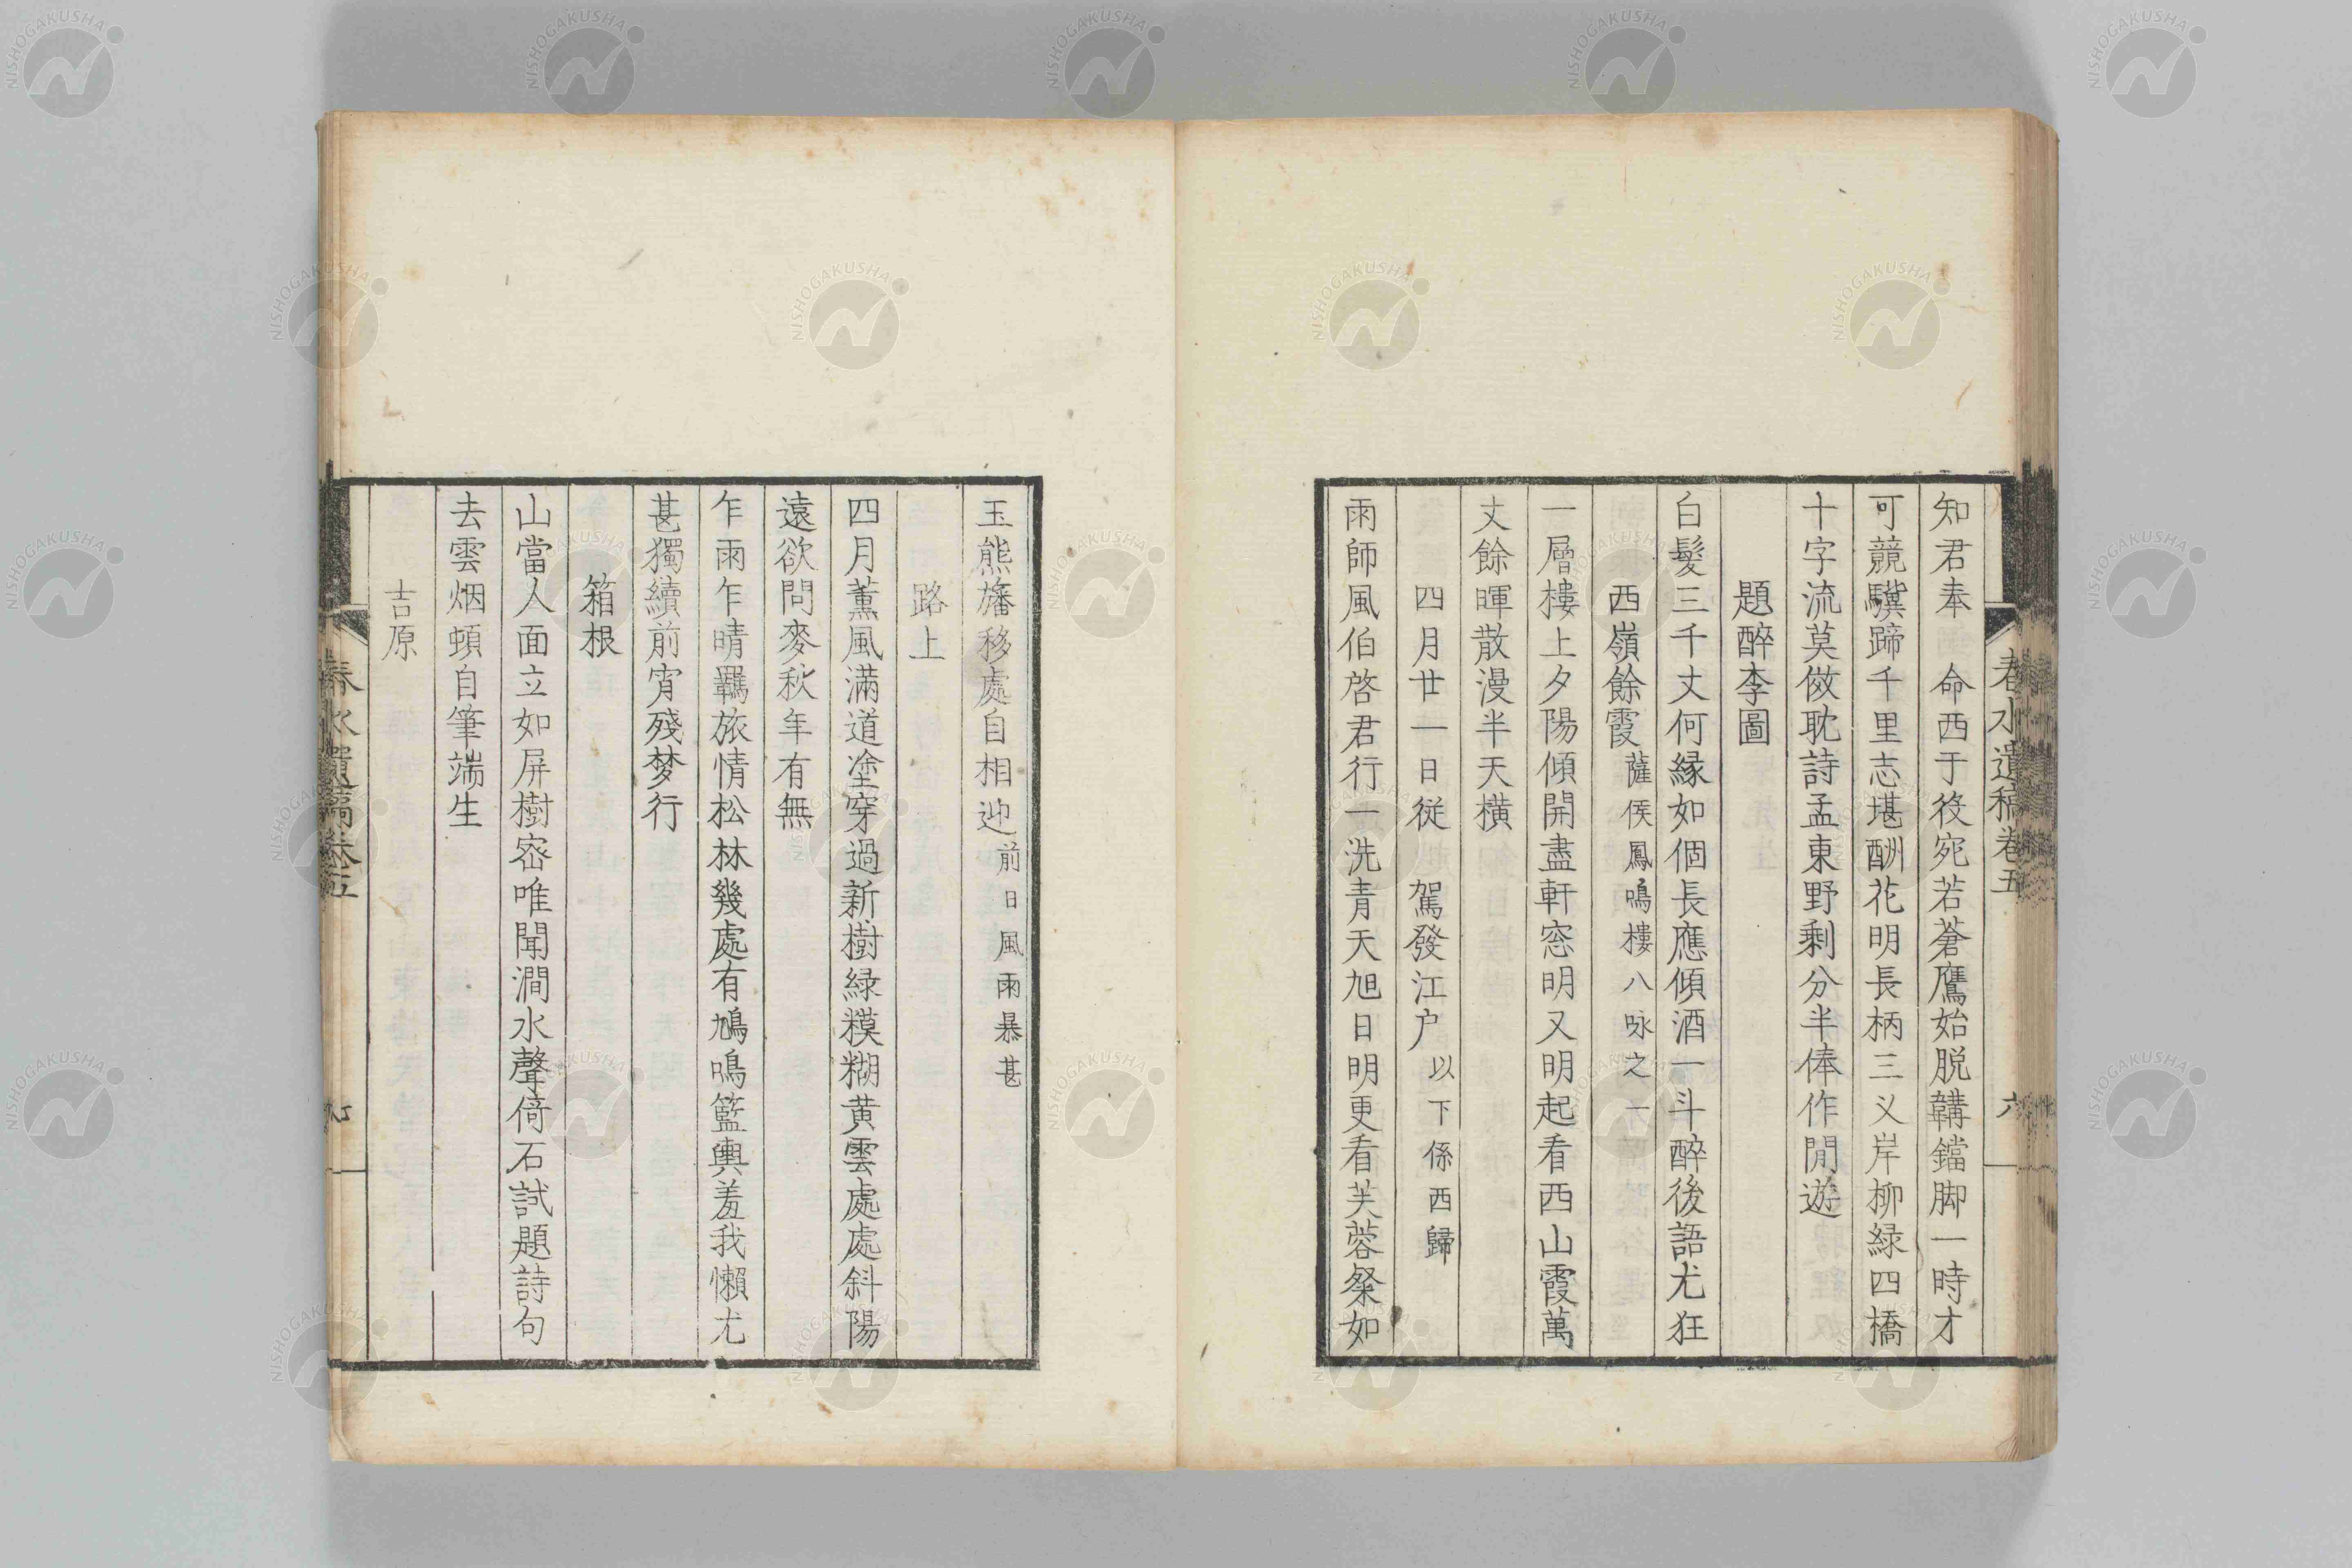 春水遺稿卷五
六
知君奉　命西于役宛若蒼鷹始脱韝鐺脚一時才
可競驥蹄千里志堪酬花明長柄三义岸柳緑四橋
十字流莫倣耽詩孟東野剩分半俸作閒遊
題醉李圖
白髮三千丈何縁如個長應傾酒一斗醉後語尤狂
西嶺餘霞薩侯鳳鳴樓八咏之一
一層樓上夕陽傾開盡軒窓明又明起看西山霞萬
丈餘暉散漫半天横
四月廿一日從　駕發江户以下係西歸
雨師風伯啓君行一洗青天旭日明更看芙蓉粲如
玉熊旛移處自相迎前日風雨暴甚
路上
四月薫風滿道塗穿過新樹緑糢糊黄雲處處斜陽
遠欲問麥秋年有無
乍雨乍晴羈旅情松林幾處有鳩鳴籃輿羞我懶尤
甚獨續前宵殘梦行
箱根
山當人面立如屏樹密唯聞澗水聲倚石試題詩句
去雲烟頓自筆端生
吉原
春水遺稿卷五
NISHOGAKUSHA